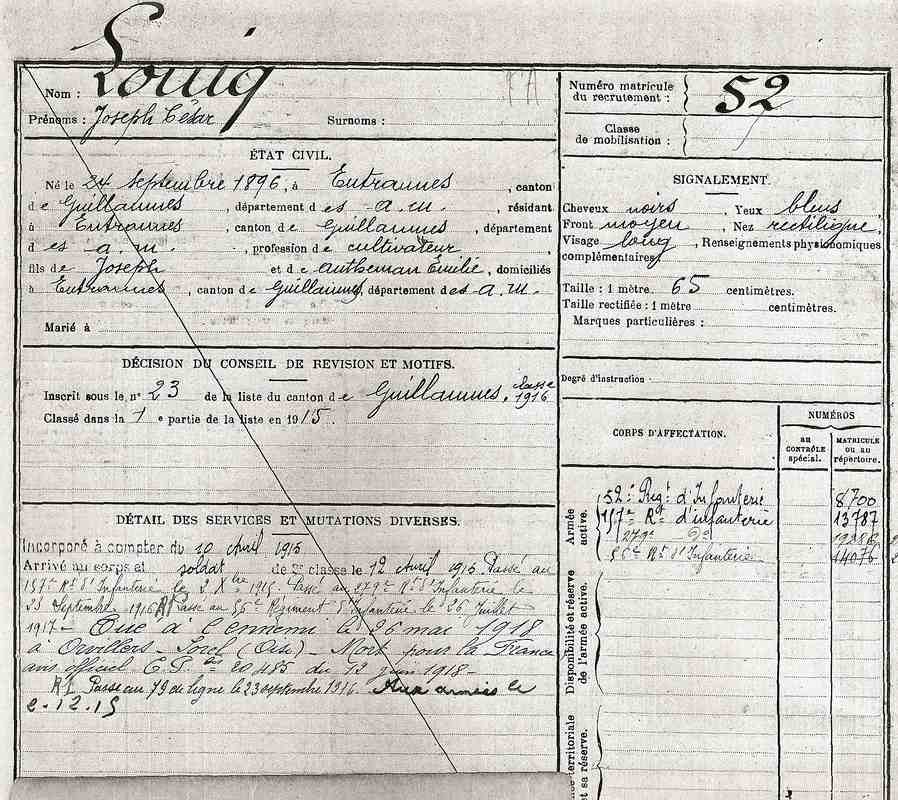 Nom : Louiq
Prénoms : Joseph César Surnoms :
ÉTAT CIVIL.
Né le 24 septembre 1896, à Entraunes, canton
de Guillaumes, département des A. M., résidant
à Entraunes, canton de Guillaumes, département
des A. M., profession de cultivateur
fils de Joseph et de Autheman Émilie, domiciliés
à Entraunes, canton de Guillaumes, département des A. M.
Marié à
DÉCISION DU CONSEIL DE REVISION ET MOTIFS.
Inscrit sous le n° 23 de la liste du canton de Guillaumes, classe 1916
Classé dans la 1e partie de la liste en 1915.
DÉTAIL DES SERVICES ET MUTATIONS DIVERSES.
Incorporé à compter du 10 avril 1915
Arrivé au corps et soldat de 2e classe le 12 avril 1915 Passé au
157e Rt d'Infanterie le 2 Xbre 1915. Passé au 279e Rt d'Infanterie le
23 Septembre 1916 Passé au 56e Régiment d'Infanterie le 26 Juillet
1917 - Tué à l'ennemi le 26 mai 1918
à Orvillers-Sorel (Oise) - Mort pour la France
avis officiel E. P. 20485 du 12 juin 1918 -
Passé au 79 de ligne le 23 septembre 1916. Aux armées le
2.12.15
Numéro matricule
du recrutement : 52
Classe
de mobilisation :
SIGNALEMENT.
Cheveux noirs, Yeux bleus
Front moyen, Nez rectiligne,
Visage long, Renseignements physionomiques
complémentaires
Taille : 1 mètre 65 centimètres.
Taille rectifiée : 1 mètre centimètres.
Marques particulières :
Degré d'instruction
CORPS D'AFFECTATION.
NUMÉROS
AU CONTRÔLE spécial.
MATRICULE OU AU répertoire.
Armée active.
52e Régt d'Infanterie 8700
157e Rgt d'infanterie 13787
279e
56e Rt d'Infanterie 14076
Disponibilité et réserve de l'armée active.
territoriale et sa réserve.